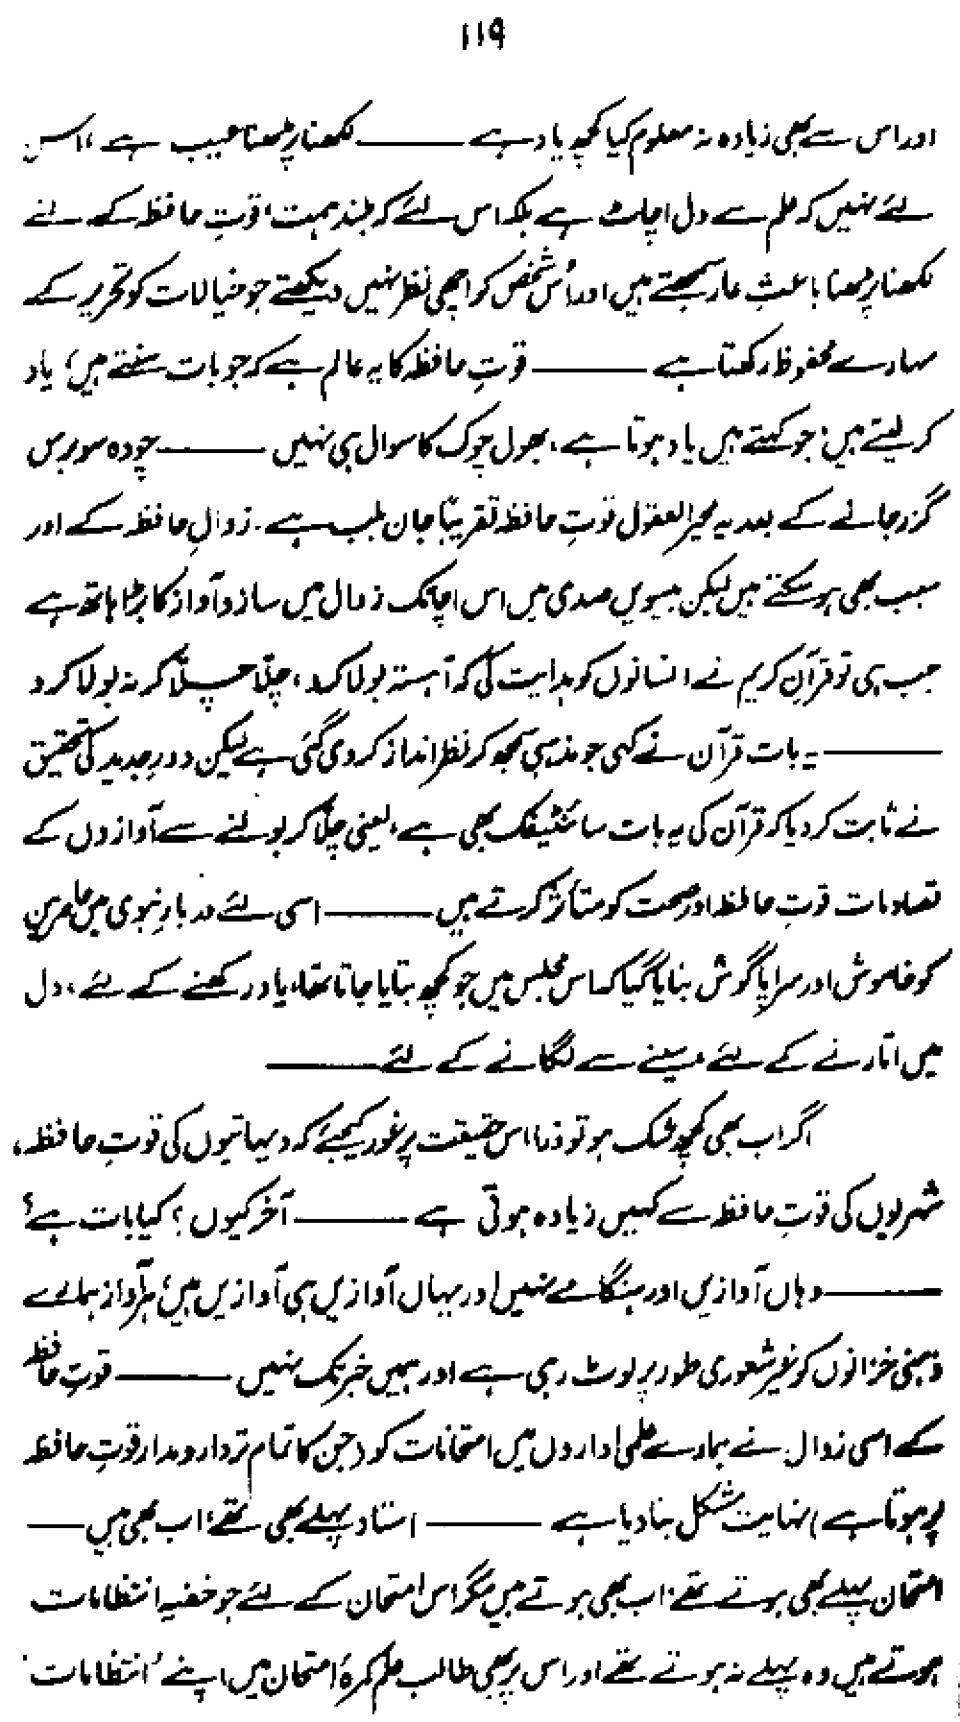 ۱۱۹
اور اس سے بھی زیادہ نہ معلوم کیا کچھ یاد ہے ——— لکھنا پڑھنا عیب ہے، اس
لئے نہیں کہ علم سے دل اچاٹ ہے بلکہ اس لئے کہ بلند ہمت، قوتِ حافظہ کے لئے
لکھنا پڑھنا باعثِ عار سمجھتے ہیں اور اُس شخص کو اچھی نظر نہیں دیکھتے جو خیالات کو تحریر کے
سہارے محفوظ رکھتا ہے ——— قوتِ حافظہ کا یہ عالم ہے کہ جو بات سنتے ہیں، یاد
کر لیتے ہیں؛ جو کہتے ہیں یاد ہوتا ہے، بھول چوک کا سوال ہی نہیں ——— چودہ سو برس
گزر جانے کے بعد یہ محیر العقول قوتِ حافظہ تقریباً جان بلب ہے۔ زوالِ حافظہ کے اور
سبب بھی ہو سکتے ہیں لیکن بیسویں صدی میں اس اچانک زوال میں ساز و آواز کا بڑا ہاتھ ہے
جب ہی تو قرآنِ کریم نے انسانوں کو ہدایت کی کہ آہستہ بولا کرو، چلّا چلّا کر نہ بولا کرو
——— یہ بات قرآن نے کہی جو مذہبی سمجھ کر نظر انداز کر دی گئی ہے لیکن دورِ جدید کی تحقیق
نے ثابت کر دیا کہ قرآن کی یہ بات سائنٹیفک بھی ہے، یعنی چلّا کر بولنے سے آوازوں کے
تصادمات قوتِ حافظہ اور صحت کو متاثر کرتے ہیں ——— اسی لئے دربارِ نبوی میں حاضرین
کو خاموش اور سراپا گوش بنایا گیا کہ اس مجلس میں جو کچھ بتایا جاتا تھا، یاد رکھنے کے لئے، دل
میں اتارنے کے لئے، سینے سے لگانے کے لئے ———
اگر اب بھی کچھ شک ہو تو ذرا اس حقیقت پر غور کیجئے کہ دیہاتیوں کی قوتِ حافظہ،
شہریوں کی قوتِ حافظہ سے کہیں زیادہ ہوتی ہے ——— آخر کیوں؟ کیا بات ہے؟
——— وہاں آوازیں اور ہنگامے نہیں اور یہاں آوازیں ہی آوازیں ہیں، ہر آواز ہمارے
ذہنی خزانوں کو غیر شعوری طور پر لوٹ رہی ہے اور ہمیں خبر تک نہیں ——— قوتِ حافظہ
کے اسی زوال نے ہمارے علمی اداروں میں امتحانات کو (جن کا تمام تر دارومدار قوتِ حافظہ
پر ہوتا ہے) نہایت مشکل بنا دیا ہے ——— استاد پہلے بھی تھے، اب بھی ہیں ——
امتحان پہلے بھی ہوتے تھے، اب بھی ہوتے ہیں مگر اس امتحان کے لئے جو خفیہ انتظامات
ہوتے ہیں وہ پہلے نہ ہوتے تھے اور اس پر بھی طالب علم کمرۂ امتحان میں اپنے 'انتظامات'